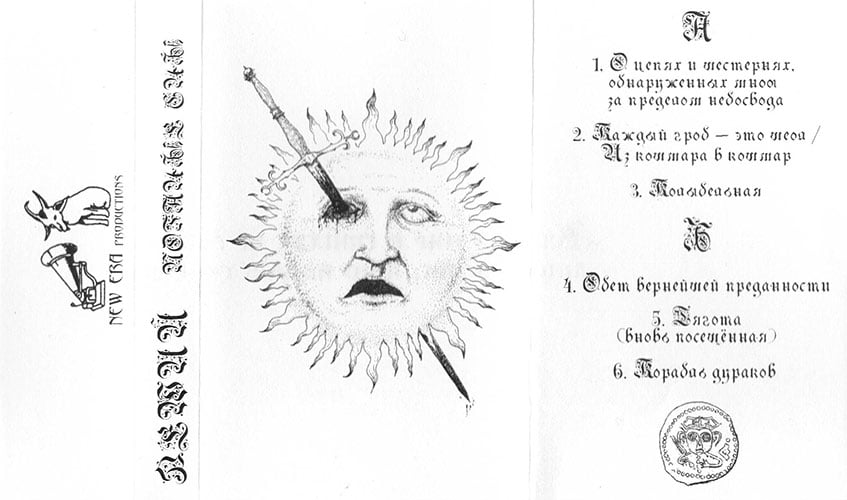 NEW ERA PRODUCTIONS
ЛЕШИЙ ПОГАНЫЕ СНЫ
А
1. О цепях и шестернях,
обнаруженных мной
за пределом небосвода
2. Каждый гроб – это /
Из кошмара в кошмар
3. Колыбельная
Б
4. Обет вернейшей преданности
5. Тягота
(вновь посещённая)
6. Корабль дураков